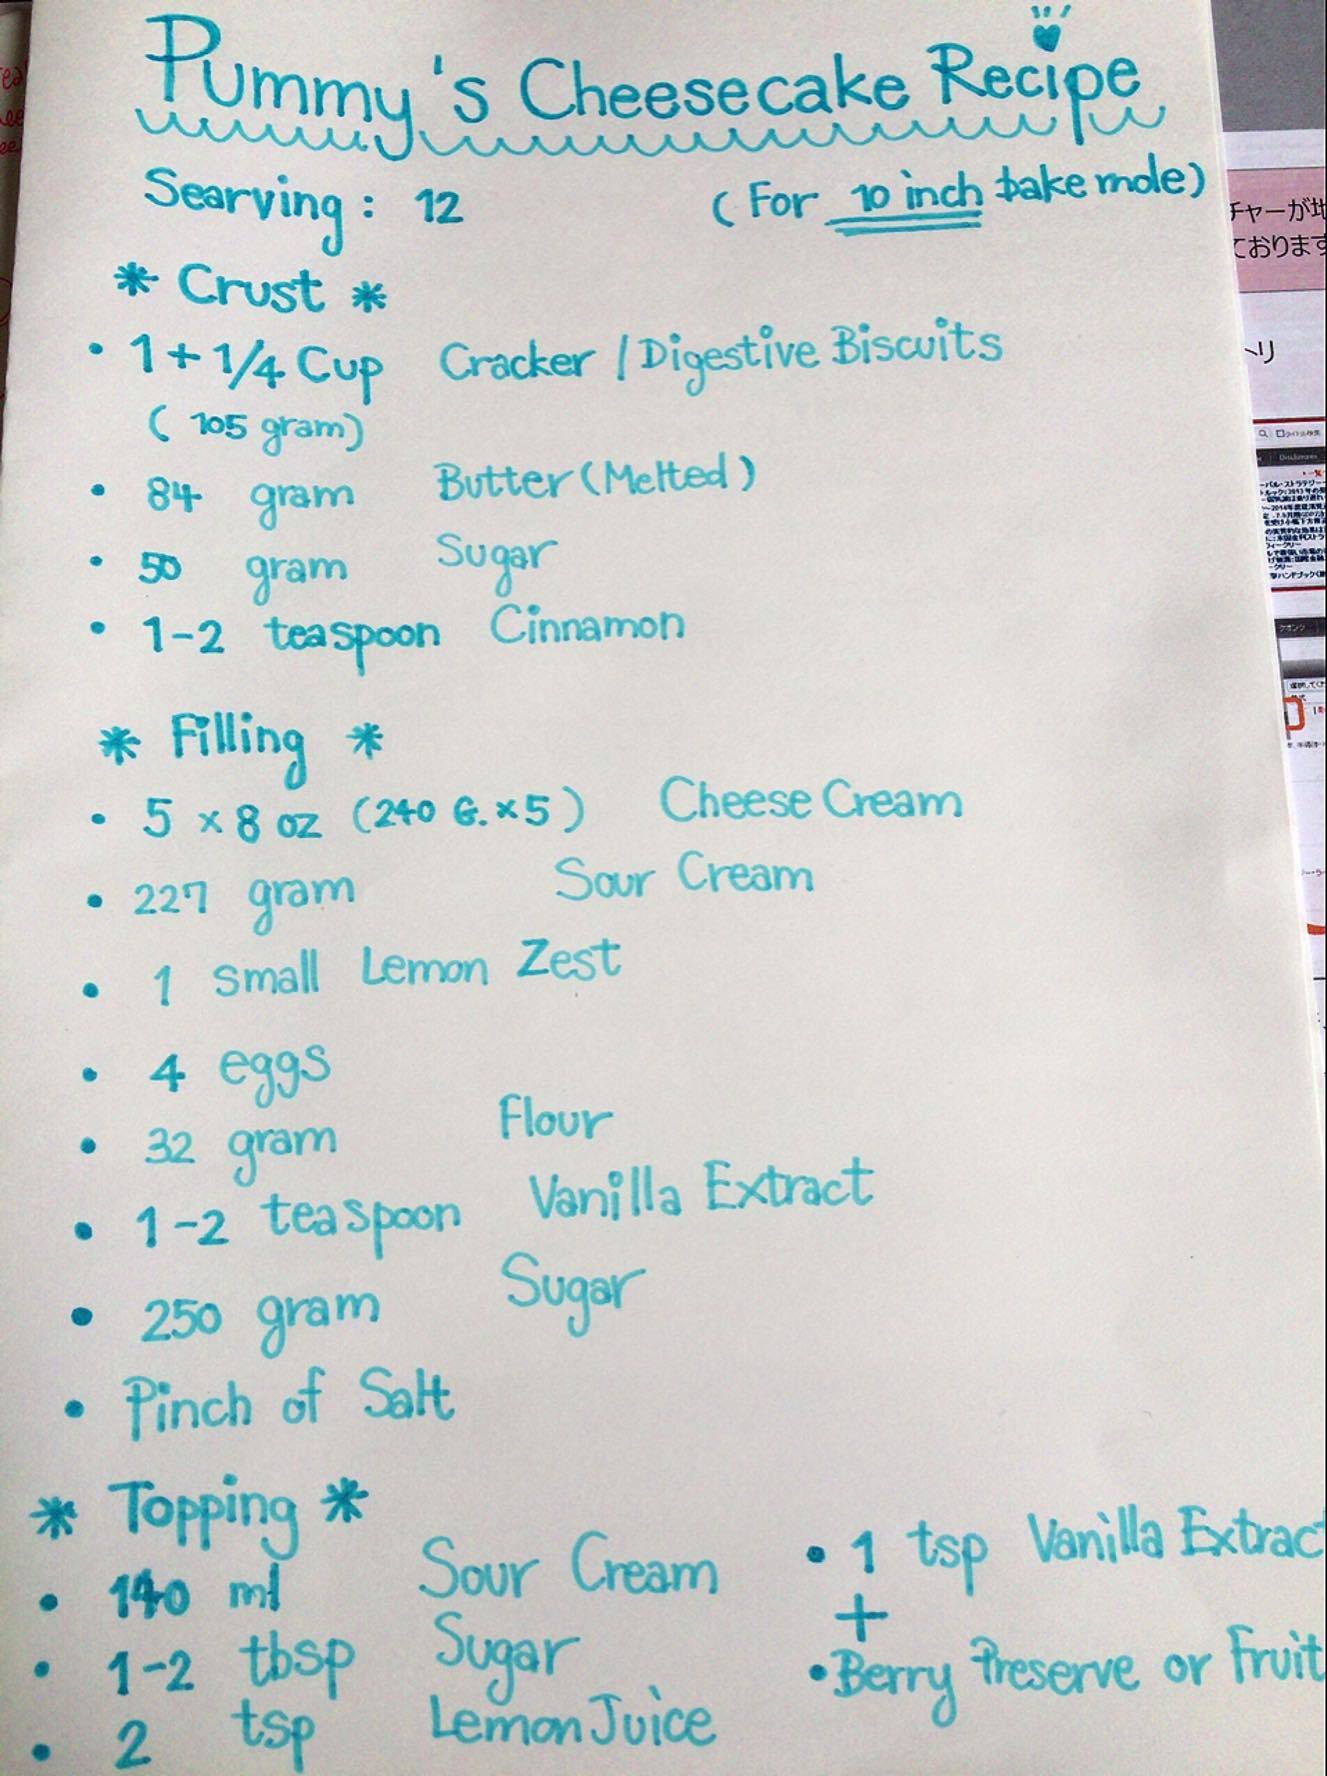 Pummy's Cheesecake Recipe
Searving : 12 (For 10 inch bake mole)
* Crust *
• 1+1/4 Cup Cracker / Digestive Biscuits
(105 gram)
• 84 gram Butter (Melted)
• 50 gram Sugar
• 1-2 teaspoon Cinnamon
* Filling *
• 5 x 8 oz (240 G. x 5) Cheese Cream
• 227 gram Sour Cream
• 1 small Lemon Zest
• 4 eggs
• 32 gram Flour
• 1-2 teaspoon Vanilla Extract
• 250 gram Sugar
• Pinch of Salt
* Topping *
• 140 ml Sour Cream
• 1-2 tbsp Sugar
• 2 tsp Lemon Juice
• 1 tsp Vanilla Extrac
+
• Berry Preserve or Fruit
チャーが地
ております